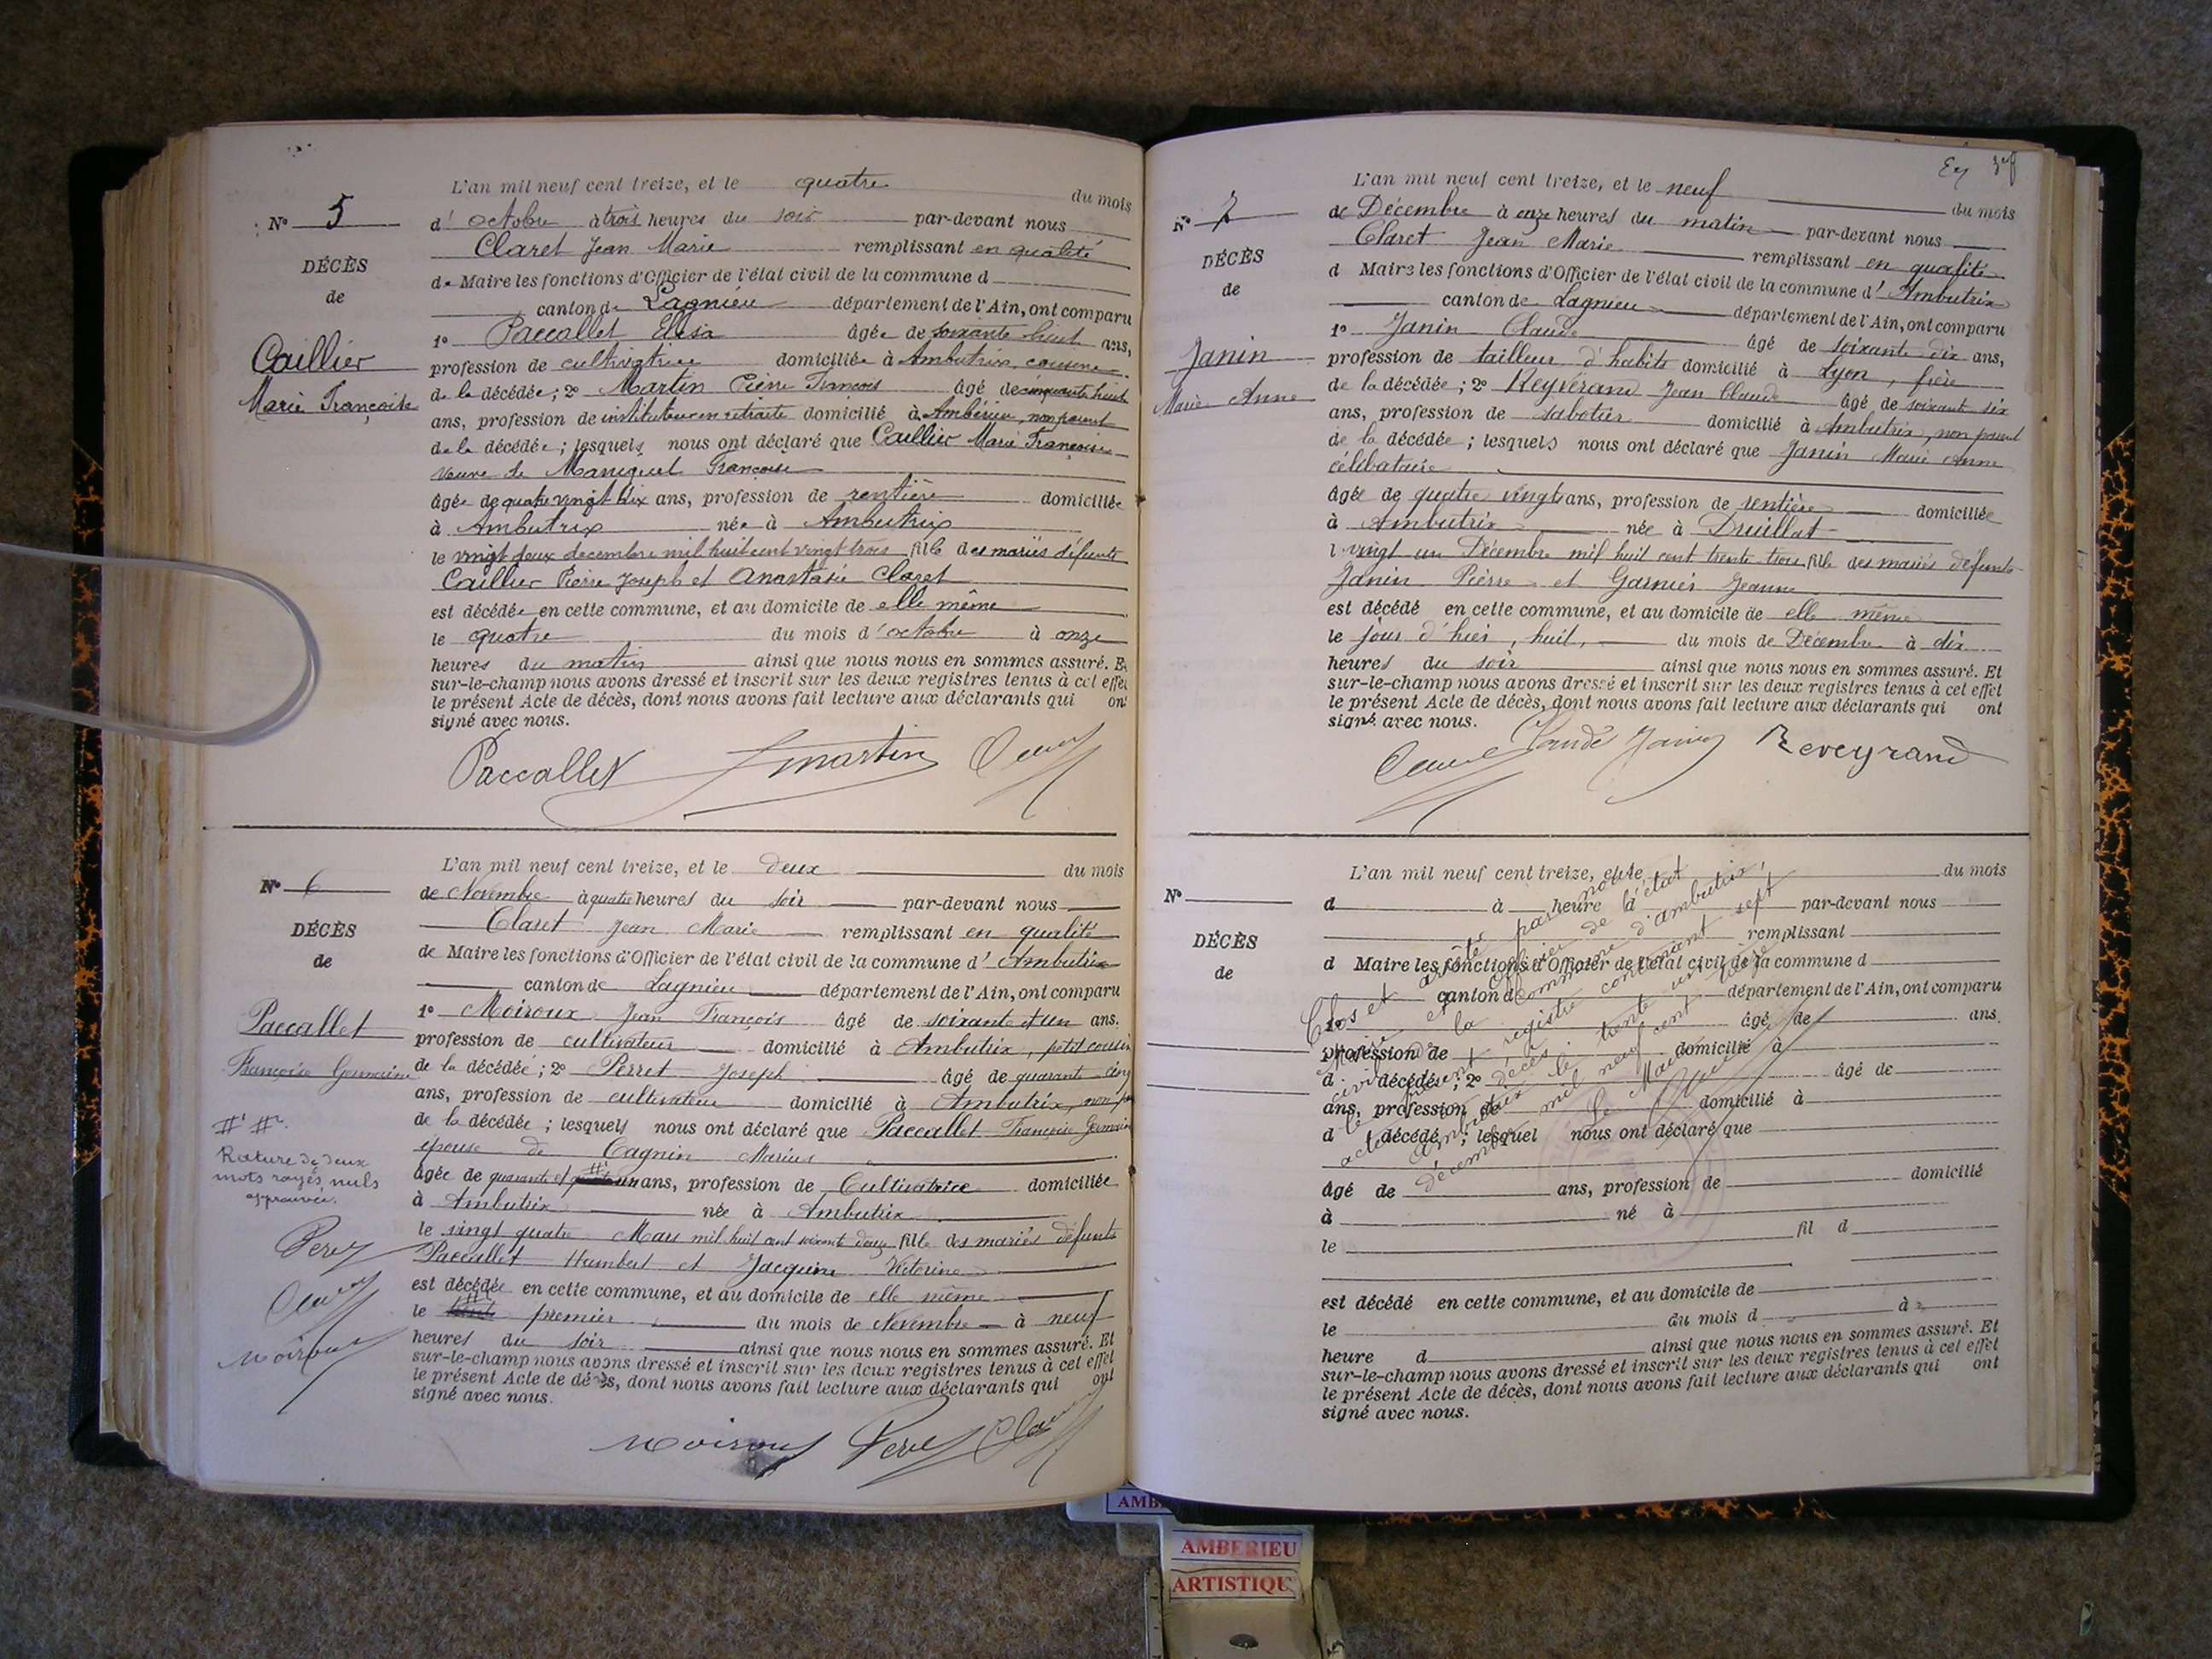 L'an mil neuf cent treize, et le quatre du mois
N° 5
d'octobre à trois heures du soir par-devant nous
Claret Jean Marie remplissant en qualité
DÉCÈS
de Maire les fonctions d'Officier de l'état civil de la commune d
de
canton de Lagnieu département de l'Ain, ont comparu
1° Paccallet Elisa âgée de soixante huit ans,
Caillier
profession de cultivatrice domiciliée à Ambutrix, cousine
de la décédée ; 2° Martin Pierre François âgé de cinquante huit
Marie Françoise
ans, profession de instituteur en retraite domicilié à Ambérieu, non parent
de la décédée ; lesquels nous ont déclaré que Caillier Marie Françoise
veuve de Maniquet François
âgée de quatre vingt dix ans, profession de rentière domiciliée
à Ambutrix née à Ambutrix
le vingt deux decembre mil huit cent vingt trois fille des mariés défunts
Caillier Pierre Joseph et Anastasie Claret
est décédée en cette commune, et au domicile de elle même
le quatre du mois d'octobre à onze
heures du matin ainsi que nous nous en sommes assuré. Et
sur-le-champ nous avons dressé et inscrit sur les deux registres tenus à cet effet
le présent Acte de décès, dont nous avons fait lecture aux déclarants qui ont
signé avec nous.
Paccallet Martin Claret
L'an mil neuf cent treize, et le deux du mois
N° 6
de Novembre à quatre heures du soir par-devant nous
Claret Jean Marie remplissant en qualité
DÉCÈS
de Maire les fonctions d'Officier de l'état civil de la commune d'Ambutrix
de
canton de Lagnieu département de l'Ain, ont comparu
1° Moiroux Jean François âgé de soixante et un ans.
Paccallet
profession de cultivateur domicilié à Ambutrix, petit cousin
Françoise Germaine
de la décédée ; 2° Perret Joseph âgé de quarante cinq
ans, profession de cultivateur domicilié à Ambutrix, non
de la décédée ; lesquels nous ont déclaré que Paccallet Françoise Germaine
épouse de Cagnin Marius
Rature de deux
mots rayés nuls
approuvée.
âgée de quarante et un ans, profession de Cultivatrice domiciliée
à Ambutrix née à Ambutrix
le vingt quatre Mars mil huit cent soixante douze fille des mariés défunts
Paccallet Humbert et Jacquin Victorine
est décédée en cette commune, et au domicile de elle même
le premier du mois de Novembre à neuf
heures du soir ainsi que nous nous en sommes assuré. Et
sur-le-champ nous avons dressé et inscrit sur les deux registres tenus à cet effet
le présent Acte de décès, dont nous avons fait lecture aux déclarants qui ont
signé avec nous.
Perret
Claret
Moiroux
Moiroux Perret Claret
L'an mil neuf cent treize, et le neuf du mois
N° 7
de Décembre à onze heures du matin par-devant nous
Claret Jean Marie remplissant en qualité
DÉCÈS
d Maire les fonctions d'Officier de l'état civil de la commune d'Ambutrix
de
canton de Lagnieu département de l'Ain, ont comparu
1° Janin Claude âgé de soixante dix ans,
Janin
profession de tailleur d'habits domicilié à Lyon, frère
de la décédée ; 2° Reyvérand Jean Claude âgé de soixant six
Marie Anne
ans, profession de sabotier domicilié à Ambutrix, non parent
de la décédée ; lesquels nous ont déclaré que Janin Marie Anne
célibataire
âgée de quatre vingt ans, profession de rentière domiciliée
à Ambutrix née à Druillat
l vingt un Décembre mil huit cent trente trois fille des mariés défunts
Janin Pierre et Garnier Jeanne
est décédé en cette commune, et au domicile de elle même
le jour d'hier, huit, du mois de Décembre à dix
heures du soir ainsi que nous nous en sommes assuré. Et
sur-le-champ nous avons dressé et inscrit sur les deux registres tenus à cet effet
le présent Acte de décès, dont nous avons fait lecture aux déclarants qui ont
signé avec nous.
Claret Claude Janin Reveyrand
L'an mil neuf cent treize, et le du mois
N°
d à heure d par-devant nous
remplissant
DÉCÈS
d Maire les fonctions d'Officier de l'état civil de la commune d
de
canton d département de l'Ain, ont comparu
1° âgé de ans,
profession de domicilié à
d décédé ; 2° âgé de
ans, profession de domicilié à
d décédé ; lesquel nous ont déclaré que
âgé de ans, profession de domicilié
à né à
le fil d
est décédé en cette commune, et au domicile de
le du mois d à
heure d ainsi que nous nous en sommes assuré. Et
sur-le-champ nous avons dressé et inscrit sur les deux registres tenus à cet effet
le présent Acte de décès, dont nous avons fait lecture aux déclarants qui ont
signé avec nous.
Clos et arrêté par nous
Maire et Officier de l'état
civil de la commune d'Ambutrix,
le présent registre contenant sept
actes de décès.
Ambutrix le trente un
décembre mil neuf cent treize
Le Maire
Claret
AMBERIEU
ARTISTIQU